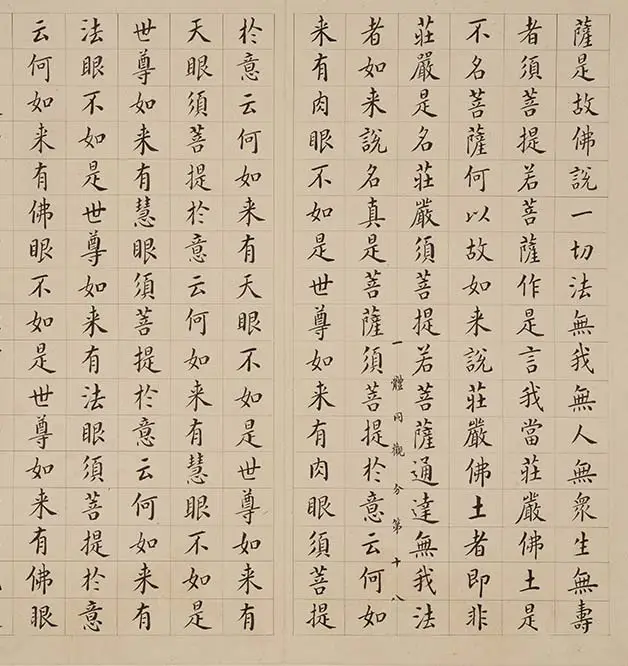 薩是故佛說一切法無我無人無眾生無壽
者須菩提若菩薩作是言我當莊嚴佛土是
不名菩薩何以故如来說莊嚴佛土者即非
莊嚴是名莊嚴須菩提若菩薩通達無我法
者如来說名真是菩薩須菩提於意云何如
一體同觀分第十八
来有肉眼不如是世尊如来有肉眼須菩提
於意云何如来有天眼不如是世尊如来有
天眼須菩提於意云何如来有慧眼不如是
世尊如来有慧眼須菩提於意云何如来有
法眼不如是世尊如来有法眼須菩提於意
云何如来有佛眼不如是世尊如来有佛眼